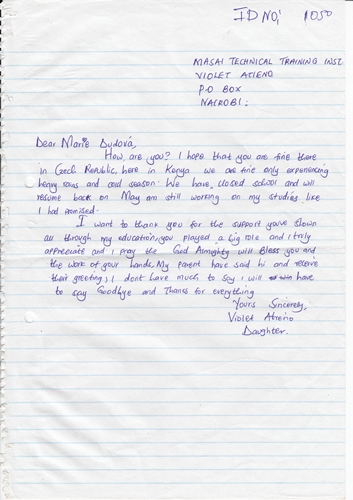 ID NO: 1050
MASAI TECHNICAL TRAINING INST
VIOLET ATIENO
P.O BOX
NAIROBI.
Dear Marie Dudová,
How are you? I hope that you are fine there
in Czech Republic, here in Kenya we are fine only experiencing
heavy rains and cold season. We have closed school and will
resume back on May am still working on my studies like
I had promised.
I want to thank you for the support you've shown
all through my education, you played a big role and I truly
appreciate and I pray the God Almighty will Bless you and
the work of your hands. My parent have said hi and receive
their greeting, I don't have much to say I will have
to say Goodbye and Thanks for everything
Yours Sincerely,
Violet Atieno
Daughter.